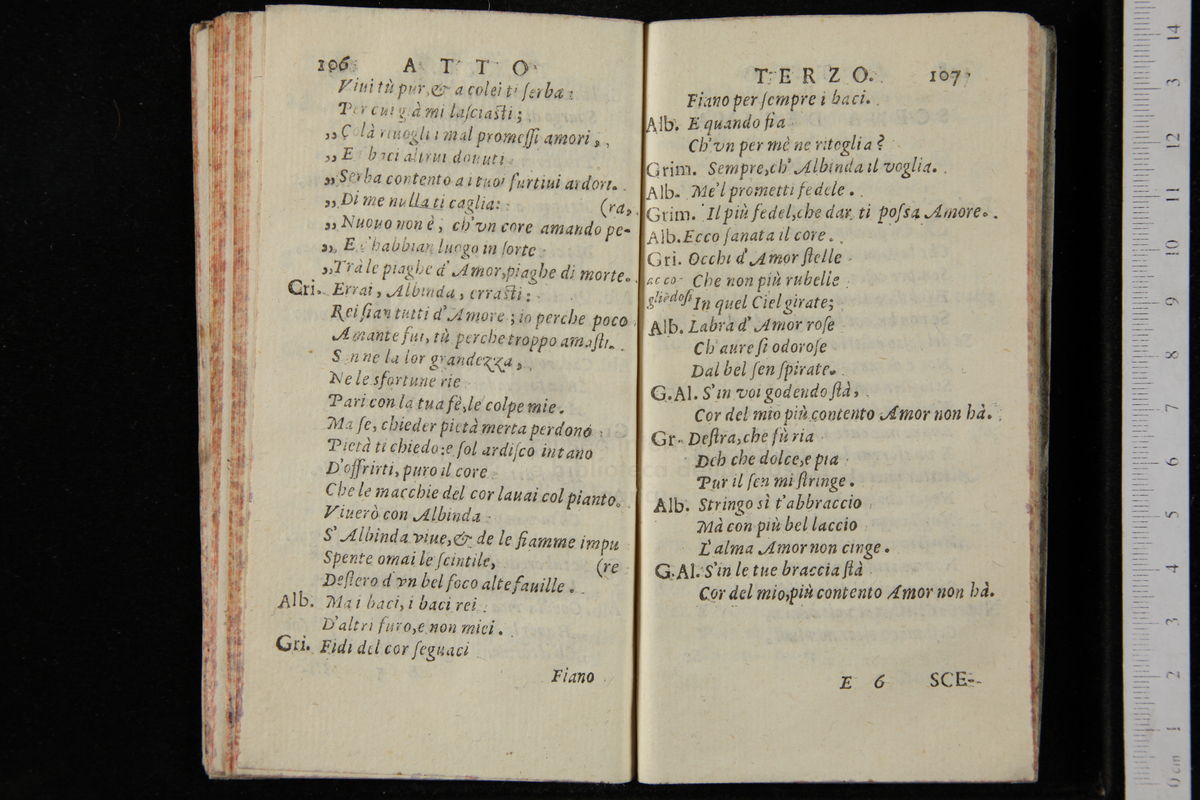 106 ATTO
Viui tù pur, & a colei ti ſerba:
Per cui già mi laſciasti;
„ Colà riuogli i mal promeſſi amori,
„ E i baci altrui douuti
„ Serba contento a i tuoi furtiui ardori.
„ Di me nulla ti caglia: (ra,
„ Nuouo non è, ch'vn core amando pe-
„ E c'habbian luogo in ſorte
„ Trà le piaghe d'Amor, piaghe di morte.
Gri. Errai, Albinda, errasti:
Rei ſian tutti d'Amore; io perche poco
Amante fui, tù perche troppo amaſti.
Son ne la lor grandezza,
Ne le sfortune rie
Pari con la tua fè, le colpe mie.
Ma ſe, chieder pietà merta perdono
Pietà ti chiedo: e ſol ardiſco intano
D'offrirti, puro il core
Che le macchie del cor lauai col pianto.
Viuerò con Albinda
S'Albinda viue, & de le fiamme impu
Spente omai le ſcintile, (re
Deſtero d'vn bel foco alte fauille.
Alb. Ma i baci, i baci rei
D'altri furo, e non miei.
Gri. Fidi del cor ſeguaci
Fiano
TERZO. 107
Fiano per ſempre i baci.
Alb. E quando fia
Ch'vn per mè ne ritoglia?
Grim. Sempre, ch'Albinda il voglia.
Alb. Me'l prometti fedele.
Grim. Il più fedel, che dar ti poſſa Amore.
Alb. Ecco ſanata il core.
Gri. Occhi d'Amor ſtelle
acco- Che non più rubelle
gliēdoſi In quel Ciel girate;
Alb. Labra d'Amor roſe
Ch'aure ſi odoroſe
Dal bel ſen ſpirate.
G.Al. S'in voi godendo ſtà,
Cor del mio più contento Amor non hà.
Gr. Deſtra, che fù ria
Deh che dolce, e pia
Pur il ſen mi ſtringe.
Alb. Stringo sì t'abbraccio
Mà con più bel laccio
L'alma Amor non cinge.
G.Al. S'in le tue braccia ſtà
Cor del mio, più contento Amor non hà.
E 6 SCE-